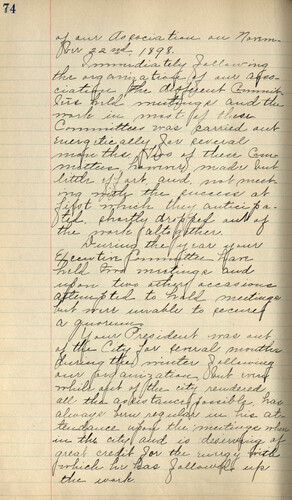 74
of our Association on Novem-
ber 22nd, 1898.
Immediately following
the organization of our asso-
ciation the different Commit-
tees held meetings and the
work in most of these
Committees was carried out
energetically for several
months. Two of these Com-
mittees however made but
little effort and not meet-
ing with the success at
first which they anticipa-
ted. shortly dropped out of
the work altogether.
During the year your
Executive Committee have
held two meetings and
upon two other occasions
attempted to hold meetings
but were unable to secure
a quorum.
Your President was out
of the City for several months
during the winter following
our organization but even
while out of the city rendered
all the assistance possible, has
always been regular in his at-
tendance upon the meetings when
in the city and is deserving of
great credit for the energy with
which he has followed up
the work